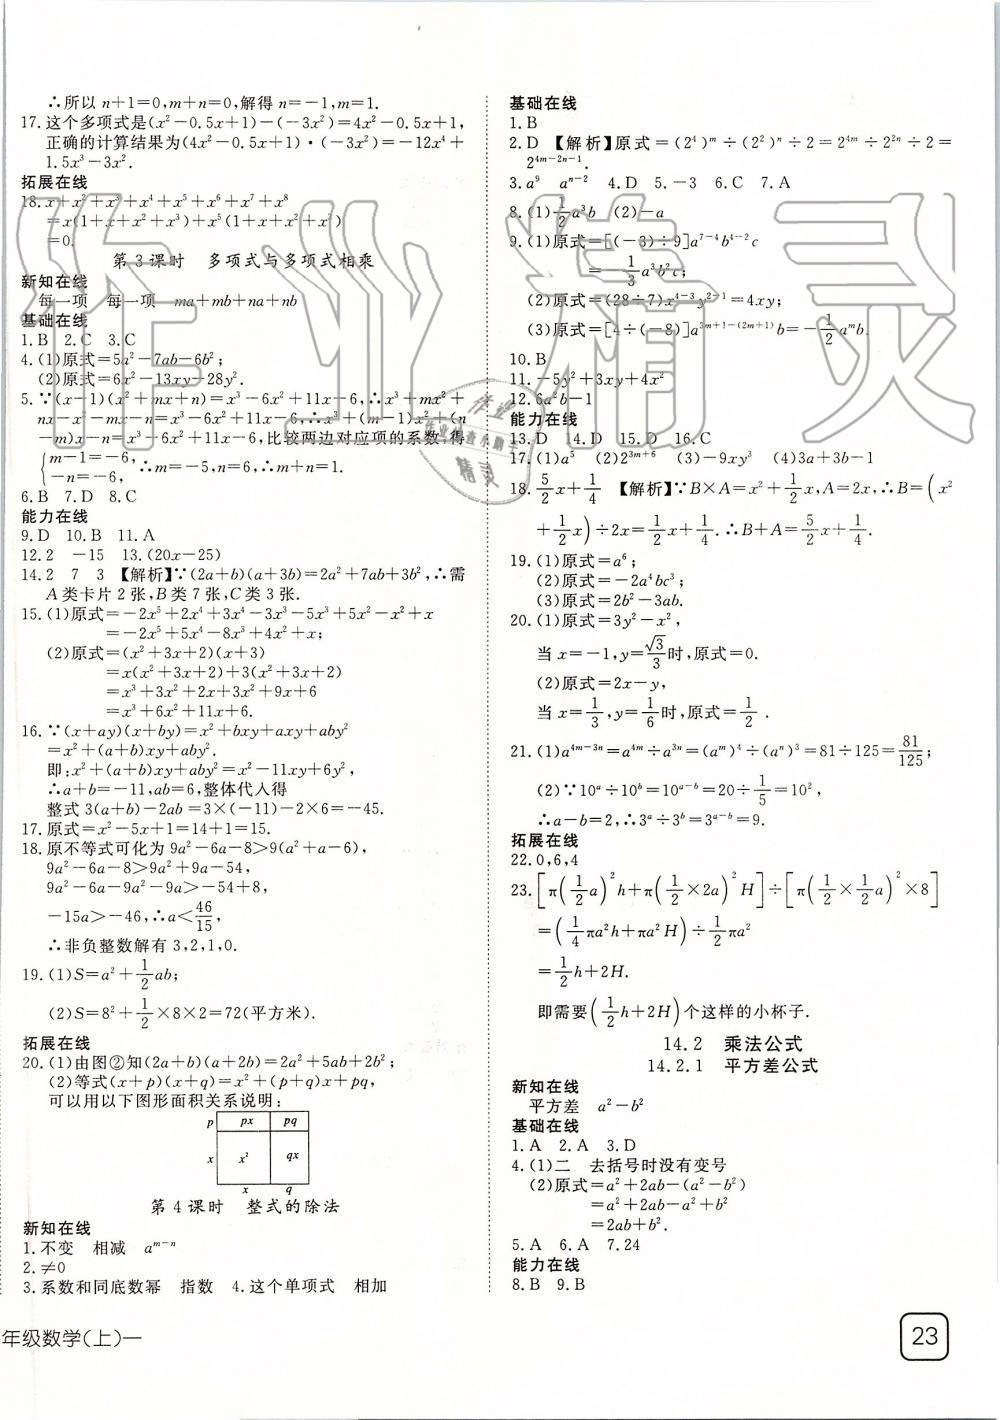 ∴所以 n+1=0,m+n=0,解得 n=-1,m=1.
17.这个多项式是(x²-0.5x+1)-(-3x²)=4x²-0.5x+1,
正确的计算结果为(4x²-0.5x+1)·(-3x²)=-12x⁴+
1.5x³-3x².
拓展在线
18.x+x²+x³+x⁴+x⁵+x⁶+x⁷+x⁸
=x(1+x+x²+x³)+x⁵(1+x+x²+x³)
=0.
第3课时 多项式与多项式相乘
新知在线
每一项 每一项 ma+mb+na+nb
基础在线
1.B 2.C 3.C
4.(1)原式=5a²-7ab-6b²;
(2)原式=6x²-13xy-28y².
5.∵(x-1)(x²+mx+n)=x³-6x²+11x-6,∴x³+mx²+
nx-x²-mx-n=x³-6x²+11x-6,∴x³+(m-1)x²+(n
-m)x-n=x³-6x²+11x-6,比较两边对应项的系数,得
{m-1=-6,
-n=-6, ∴m=-5,n=6.
6.B 7.D 8.C
能力在线
9.D 10.B 11.A
12.2 -15 13.(20x-25)
14.2 7 3 【解析】∵(2a+b)(a+3b)=2a²+7ab+3b²,∴需
A类卡片2张,B类7张,C类3张.
15.(1)原式=-2x⁵+2x⁴+3x⁴-3x³-5x³+5x²-x²+x
=-2x⁵+5x⁴-8x³+4x²+x;
(2)原式=(x²+3x+2)(x+3)
=x(x²+3x+2)+3(x²+3x+2)
=x³+3x²+2x+3x²+9x+6
=x³+6x²+11x+6.
16.∵(x+ay)(x+by)=x²+bxy+axy+aby²
=x²+(a+b)xy+aby².
即:x²+(a+b)xy+aby²=x²-11xy+6y²,
∴a+b=-11,ab=6,整体代人得
整式 3(a+b)-2ab=3×(-11)-2×6=-45.
17.原式=x²-5x+1=14+1=15.
18.原不等式可化为 9a²-6a-8>9(a²+a-6),
9a²-6a-8>9a²+9a-54,
9a²-6a-9a²-9a>-54+8,
-15a>-46,∴a<46/15,
∴非负整数解有 3,2,1,0.
19.(1)S=a²+1/2ab;
(2)S=8²+1/2×8×2=72(平方米).
拓展在线
20.(1)由图②知(2a+b)(a+2b)=2a²+5ab+2b²;
(2)等式(x+p)(x+q)=x²+(p+q)x+pq,
可以用以下图形面积关系说明:
p px pq
x x² qx
x q
第4课时 整式的除法
新知在线
1.不变 相减 aᵐ⁻ⁿ
2.≠0
3.系数和同底数幂 指数 4.这个单项式 相加
年级数学(上)一
基础在线
1.B
2.D 【解析】原式=(2⁴)ᵐ÷(2²)ⁿ÷2=2⁴ᵐ÷2²ⁿ÷2=
2⁴ᵐ⁻²ⁿ⁻¹.
3.a⁹ aⁿ⁻² 4.D 5.-3 6.C 7.A
8.(1)1/2a³b (2)-a
9.(1)原式=[(-3)÷9]a⁷⁻⁴b⁴⁻²c
=-1/3a³b²c;
(2)原式=(28÷7)x⁴⁻³y²⁻¹=4xy;
(3)原式=[4÷(-8)]a³ᵐ⁺¹⁻⁽²ᵐ⁺¹⁾b=-1/2aᵐb.
10.B
11.-5y²+3xy+4x²
12.6a²b-1
能力在线
13.D 14.D 15.D 16.C
17.(1)a⁵ (2)2³ᵐ⁺⁶ (3)-9xy³ (4)3a+3b-1
18.5/2x+1/4 【解析】∵B×A=x²+1/2x,A=2x,∴B=(x²
+1/2x)÷2x=1/2x+1/4.∴B+A=5/2x+1/4.
19.(1)原式=a⁶;
(2)原式=-2a⁴bc³;
(3)原式=2b²-3ab.
20.(1)原式=3y²-x²,
当 x=-1,y=√3/3时,原式=0.
(2)原式=2x-y,
当 x=1/3,y=1/6时,原式=1/2.
21.(1)a⁴ᵐ⁻³ⁿ=a⁴ᵐ÷a³ⁿ=(aᵐ)⁴÷(aⁿ)³=81÷125=81/125;
(2)∵10ᵃ÷10ᵇ=10ᵃ⁻ᵇ=20÷1/5=10²,
∴a-b=2,∴3ᵃ÷3ᵇ=3ᵃ⁻ᵇ=9.
拓展在线
22.0,6,4
23.[π(1/2a)²h+π(1/2×2a)²H]÷[π(1/2×1/2a)²×8]
=(1/4πa²h+πa²H)÷1/2πa²
=1/2h+2H.
即需要(1/2h+2H)个这样的小杯子.
14.2 乘法公式
14.2.1 平方差公式
新知在线
平方差 a²-b²
基础在线
1.A 2.A 3.D
4.(1)二 去括号时没有变号
(2)原式=a²+2ab-(a²-b²)
=a²+2ab-a²+b²
=2ab+b².
5.A 6.A 7.24
能力在线
8.B 9.B
23
作业精灵
作业
精灵